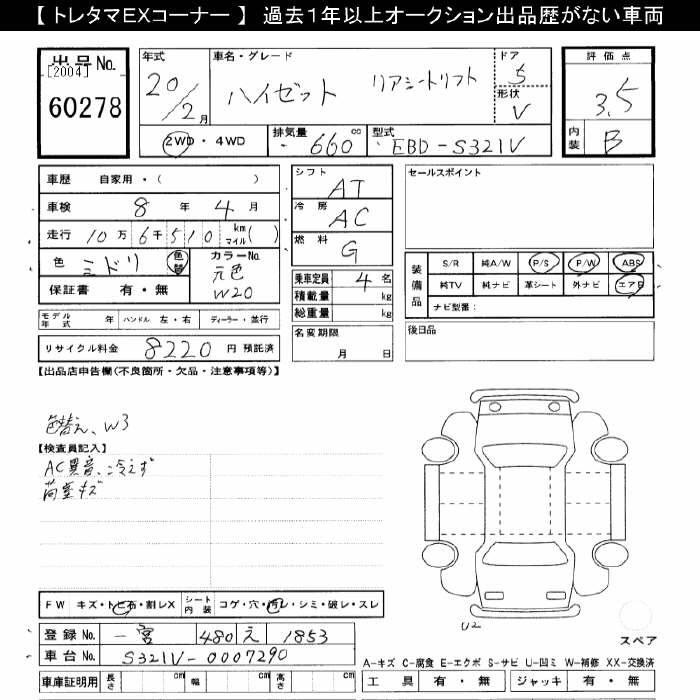 【 トレタマEXコーナー 】 過去1年以上オークション出品歴がない車両
出品No.
[2004]
60278
年式
20/2月
車名・グレード
ハイゼット リアシートリフト
ドア
5
形状
V
評価点
3.5
内装
B
2WD・4WD
排気量
660 cc
型式
EBD-S321V
車歴 自家用・( )
車検 8 年 4 月
走行 10万 6千 510 km マイル( )
色 ミドリ 色替
カラーNo.
元色
W20
保証書 有・無
モデル年式 年 ハンドル 左・右 ディーラー・並行
リサイクル料金 8220 円 預託済
シフト
AT
冷房
AC
燃料
G
乗車定員 4 名
積載量 kg
総重量 kg
名変期限
月 日
セールスポイント
装備品
S/R 純A/W P/S P/W ABS
純TV 純ナビ 革シート 外ナビ エアB
ナビ型番:
後日品
【出品店申告欄(不良箇所・欠品・注意事項等)】
色替え、W3
【検査員記入】
AC異音、冷えず
荷室キズ
FW キズ・トビ石・割レX
シート内装 コゲ・穴・汚レ・シミ・破レ・スレ
登録No. 一宮 480 え 1853
車台No. S321V-0007290
車庫証明用 長さ cm 幅 cm 高さ cm
U2
スペア
A-キズ C-腐食 E-エクボ S-サビ U-凹ミ W-補修 XX-交換済
工具 有・無 ジャッキ 有・無